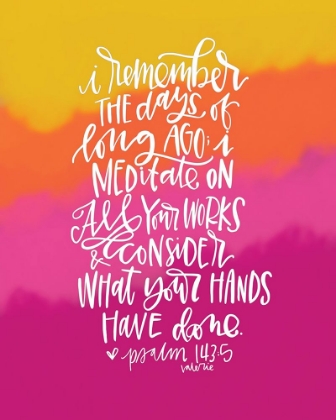 i remember
THE days of
long AGO; i
MEDitate ON
All Your WORKS
& CONSIDER
WHAT your HANDS
HAVE done.
♥ psalm 143:5
valerie